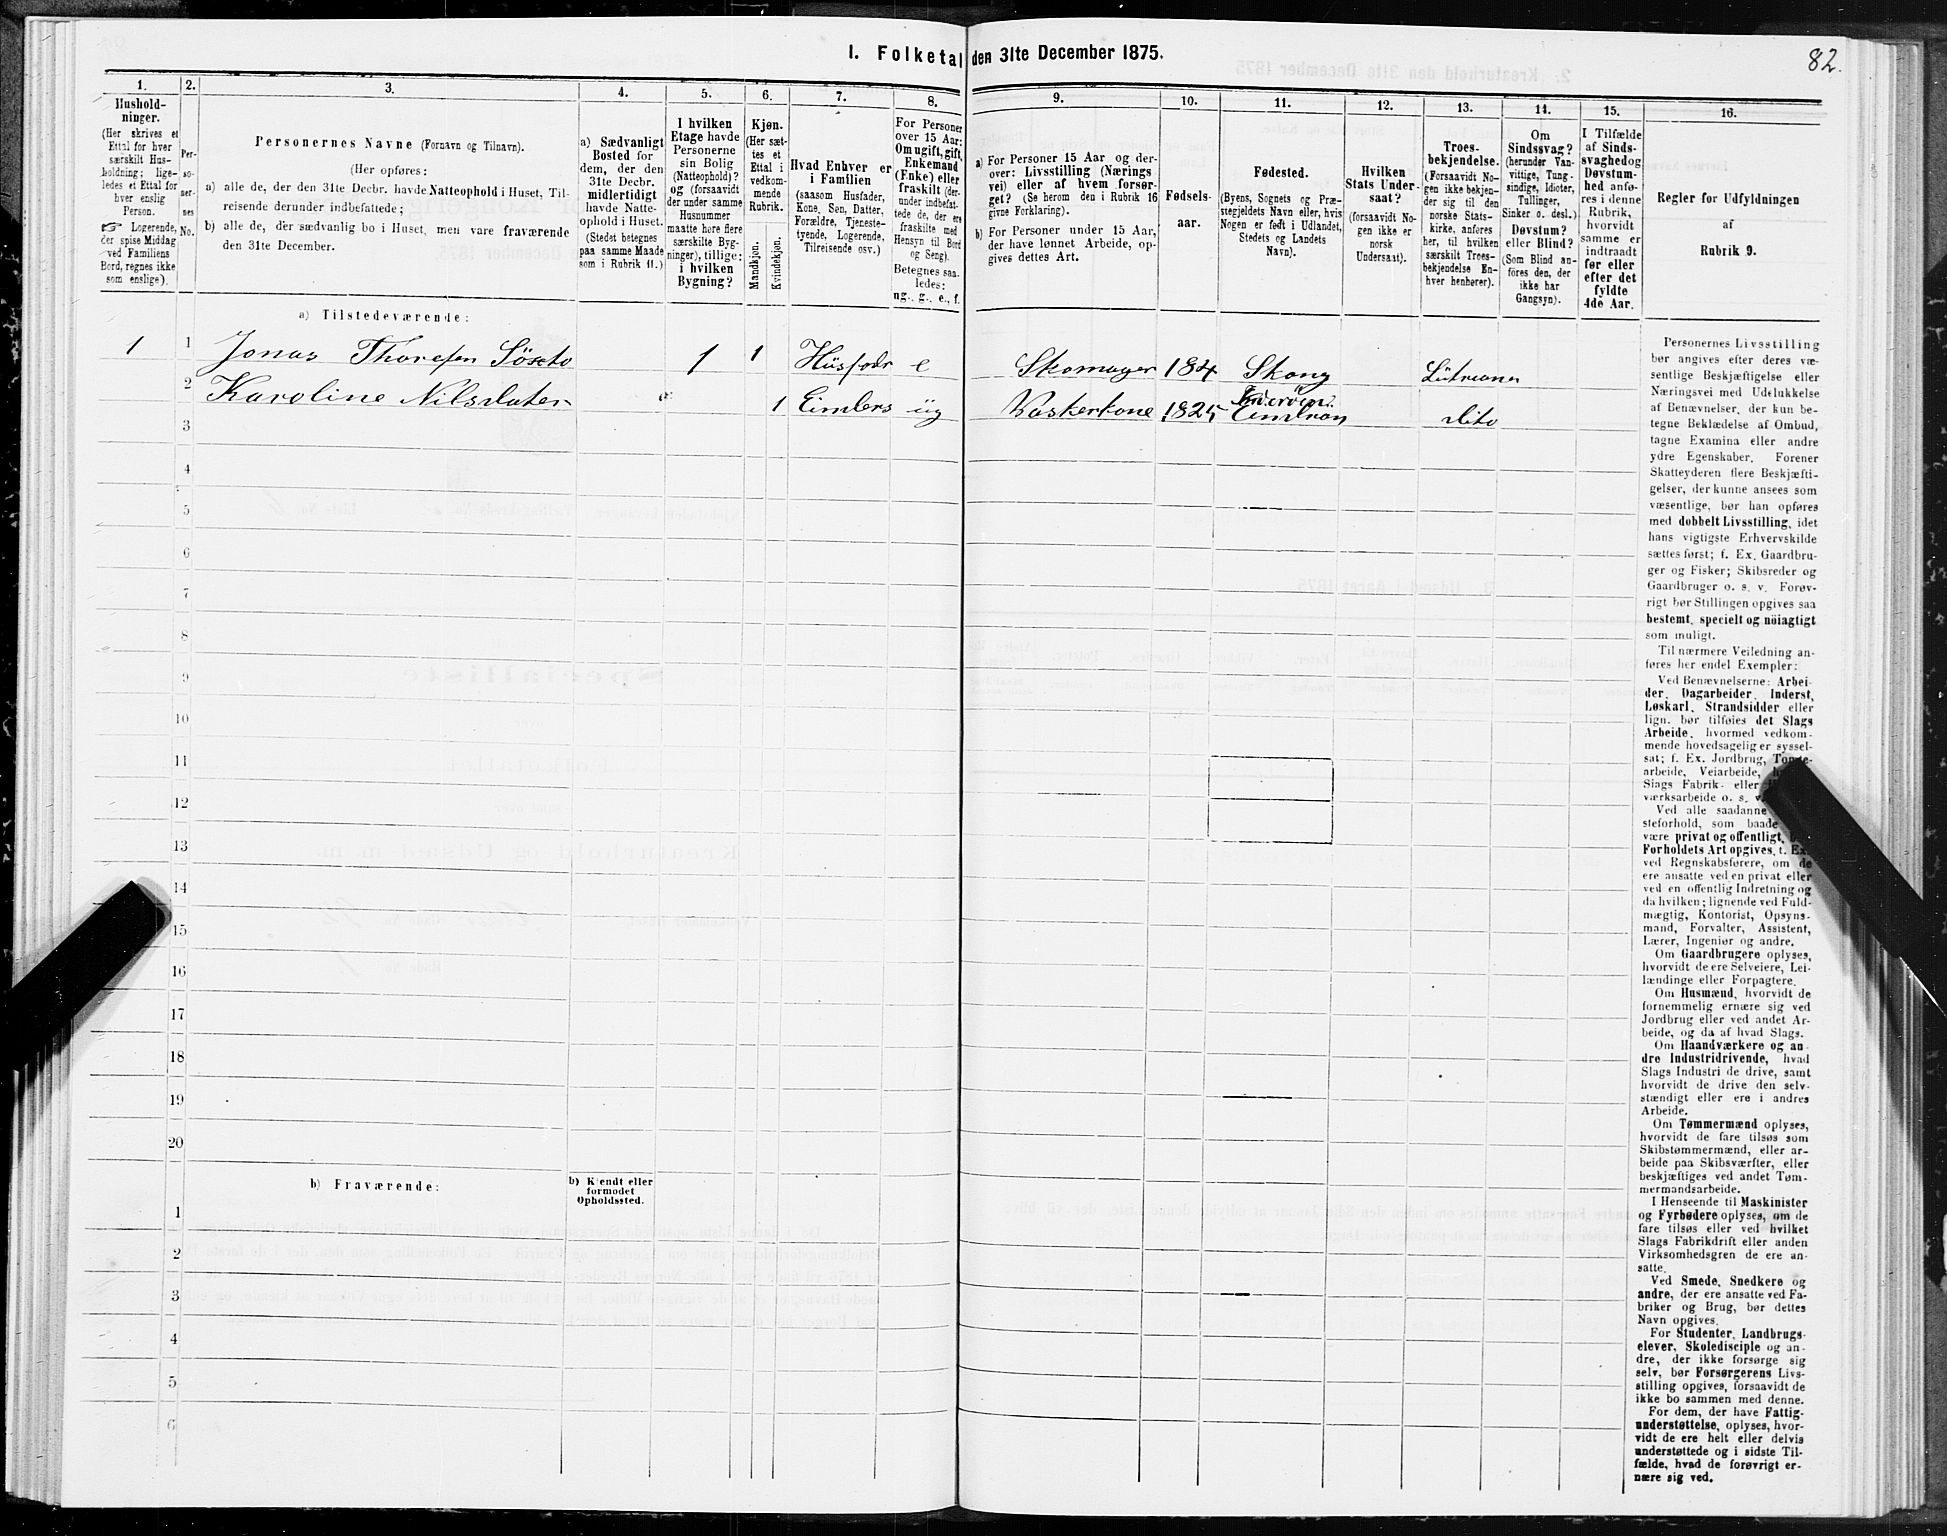 82.
I. Folketal den 31te December 1875.
1.
Hushold-
ninger.
(Her skrives et
Ettal for hver
særskilt Hus-
holdning; lige-
ledes et Ettal for
hver enslig
Person.
☞ Logerende,
der spise Middag
ved Familiens
Bord, regnes ikke
som enslige).
2.
Per-
so-
ner-
nes
No.
3.
Personernes Navne (Fornavn og Tilnavn).
(Her opføres:
a) alle de, der den 31te Decbr. havde Natteophold i Huset, Til-
reisende derunder indbefattede;
b) alle de, der sædvanlig bo i Huset, men vare fraværende
den 31te December.
4.
a) Sædvanligt
Bosted for
dem, der den
31te Decbr.
midlertidigt
havde Natte-
ophold i Huset.
(Stedet betegnes
paa samme Maade
som i Rubrik 11.)
5.
I hvilken
Etage havde
Personerne
sin Bolig
(Natteophold)?
og (forsaavidt
der under samme
Husnummer
maatte høre flere
særskilte Byg-
ninger), tillige:
i hvilken
Bygning?
6.
Kjøn.
(Her sæt-
tes et
Ettal i
vedkom-
mende
Rubrik.
Mandkjøn.
Kvindekjøn.
7.
Hvad Enhver er
i Familien
(saasom Husfader,
Kone, Søn, Datter,
Forældre, Tjeneste-
tyende, Logerende,
Tilreisende osv.)
8.
For Personer
over 15 Aar:
Om ugift, gift,
Enkemand
(Enke) eller
fraskilt (der-
under indbefat-
tede de, der ere
fraskilte med
Hensyn til Bord
og Seng).
Betegnes saa-
ledes:
ug., g., e., f.
9.
a) For Personer 15 Aar og der-
over: Livsstilling (Nærings
vei) eller af hvem forsør-
get? (Se herom den i Rubrik 16
givne Forklaring).
b) For Personer under 15 Aar,
der have lønnet Arbeide, op-
gives dettes Art.
10.
Fødsels-
aar.
11.
Fødested.
(Byens, Sognets og Præ-
stegjeldets Navn eller, hvis
Nogen er født i Udlandet,
Stedets og Landets
Navn).
12.
Hvilken
Stats Under-
saat?
(forsaavidt No-
gen ikke er
norsk
Undersaat).
13.
Troes-
bekjendelse.
(Forsaavidt No-
gen ikke bekjen-
der sig til den
norske Stats-
kirke, anføres
her, til hvilken
særskilt Troes-
bekjendelse En-
hver henhører).
14.
Om
Sindssvag?
(herunder Van-
vittige, Tung-
sindige, Idioter,
Tullinger,
Sinker o. desl.)
Døvstum?
eller Blind?
(Som Blind an-
føres den, der
ikke har
Gangsyn).
15.
I Tilfælde
af Sinds-
svaghed og
Døvstum-
hed anfø-
res i denne
Rubrik,
hvorvidt
samme er
indtraadt
før eller
efter det
fyldte
4de Aar.
16.
Regler for Udfyldningen
af
Rubrik 9.
a) Tilstedeværende:
1 1 Jonas Thoresen 1 1 Husfadr e Skomager 184 Skong Lutrianer
2 Karoline Nilsdater 1 Eimlers ug Vaskerkone 1825 dito
3
4
5
6
7
8
9
10
11
12
13
14
15
16
17
18
19
20
b) Fraværende:
b) Kjendt eller
formodet
Opholdssted.
1
2
3
4
5
6
Personernes Livsstilling
bør angives efter deres væ-
sentlige Beskjæftigelse eller
Næringsvei med Udelukkelse
af Benævnelser, der kun be-
tegne Beklædelse af Ombud,
tagne Examina eller andre
ydre Egenskaber. Forener
Skatteyderen flere Beskjæfti-
gelser, der kunne ansees som
væsentlige, bør han opføres
med dobbelt Livsstilling, idet
hans vigtigste Erhvervskilde
sættes først; f. Ex. Gaardbru-
ger og Fisker; Skibsreder og
Gaardbruger o. s. v. Forøv-
rigt bør Stillingen opgives saa
bestemt, specielt og nöiagtigt
som muligt.
Til nærmere Veiledning an-
føres her endel Exempler:
Ved Benævnelserne: Arbei-
der, Dagarbeider, Inderst,
Løskarl, Strandsidder eller
lign. bør tilføies det Slags
Arbeide, hvormed vedkom-
mende hovedsagelig er syssel-
sat; f. Ex. Jordbrug,
arbeide, Veiarbeide,
Slags Fabrik- eller
værksarbeide o. s. v.
Ved alle saadanne
steforhold, som baade
være privat og offentligt,
Forholdets Art opgives, f. Ex.
ved Regnskabsførere, om de
ere ansatte ved en privat eller
ved en offentlig Indretning og
da hvilken; lignende ved Fuld-
mægtig, Kontorist, Opsyns-
mand, Forvalter, Assistent,
Lærer, Ingeniør og andre.
Om Gaardbrugere oplyses,
hvorvidt de ere Selveiere, Lei-
lændinge eller Forpagtere.
Om Husmænd, hvorvidt de
fornemmelig ernære sig ved
Jordbrug eller ved andet Ar-
beide, og da af hvad Slags.
Om Haandværkere og an-
dre Industridrivende, hvad
Slags Industri de drive, samt
hvorvidt de drive den selv-
stændigt eller ere i andres
Arbeide.
Om Tømmermænd oplyses,
hvorvidt de fare tilsøs som
Skibstømmermænd, eller ar-
beide paa Skibsværfter, eller
beskjæftiges ved andet Tøm-
mermandsarbeide.
I Henseende til Maskinister
og Fyrbødere oplyses, om de
fare tilsøs eller ved hvilket
Slags Fabrikdrift eller anden
Virksomhedsgren de ere an-
satte.
Ved Smede, Snedkere og
andre, der ere ansatte ved Fa-
briker og Brug, bør dettes
Navn opgives.
For Studenter, Landbrugs-
elever, Skoledisciple og an-
dre, der ikke forsørge sig
selv, bør Forsørgerens Livs-
stilling opgives, forsaavidt de
ikke bo sammen med denne.
For dem, der have Fattig-
understøttelse, oplyses, hvor-
vidt de ere helt eller delvis
understøttede og i sidste Til-
fælde, hvad de forøvrigt er-
nære sig ved.